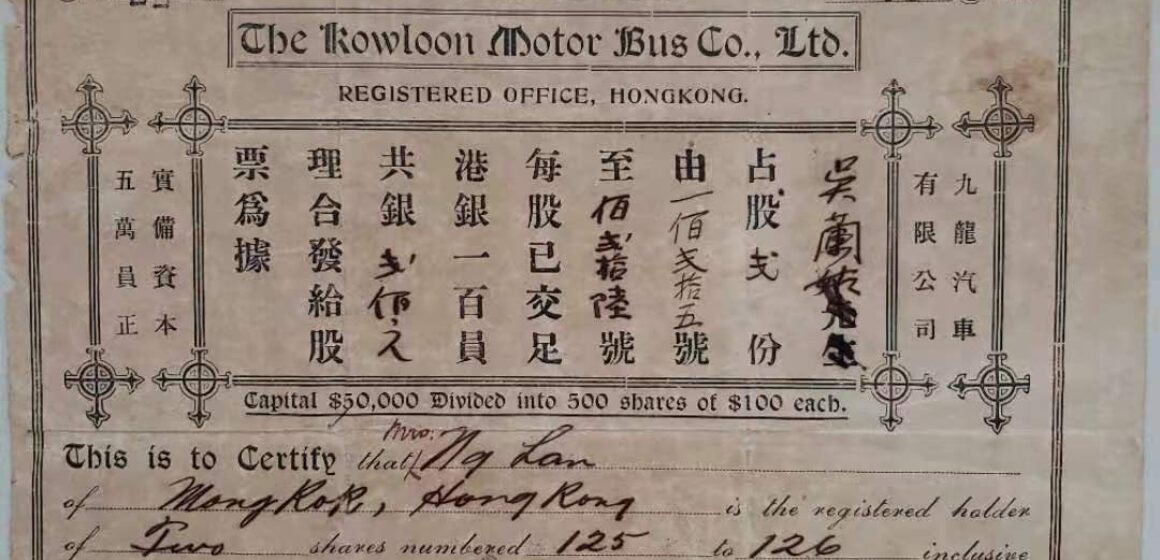 The Kowloon Motor Bus Co., Ltd.
REGISTERED OFFICE, HONGKONG.
九龍汽車
有限公司
吳蘭
占股弍份
由一佰弍拾五號
至佰弍拾陸號
每股已交足
港銀一百員
共銀弍佰元
理合發給股
票爲據
實備資本
五萬員正
Capital $50,000 Divided into 500 shares of $100 each.
This is to Certify that Mrs. Ng Lan
of Mongkok, Hong Kong is the registered holder
of Two shares numbered 125 to 126 inclusive